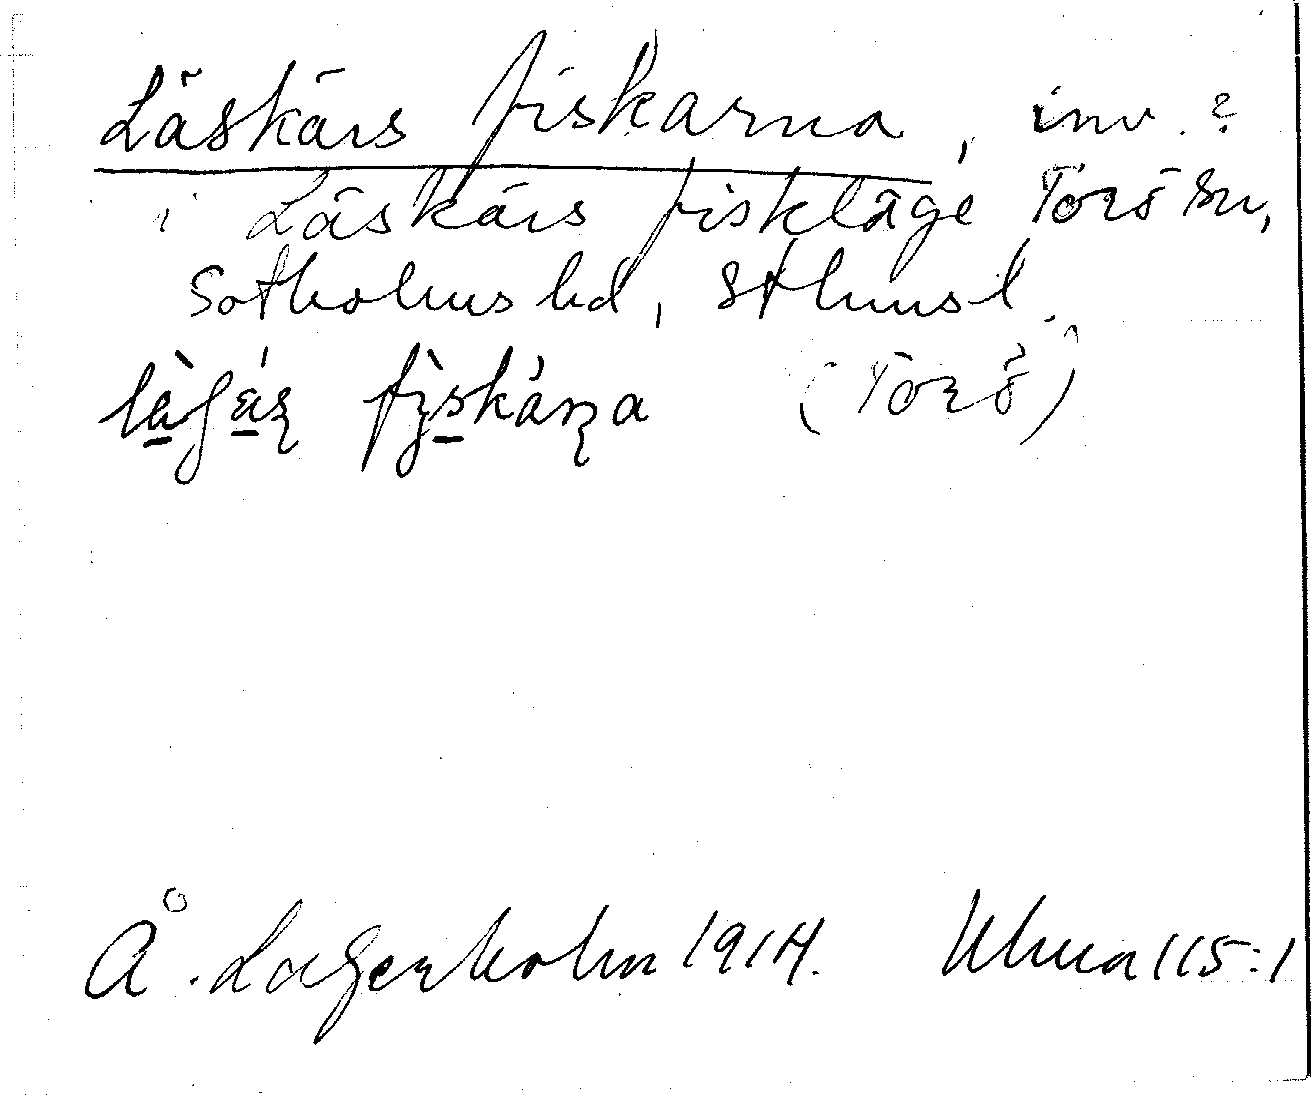 Läskärs fiskarna, inv.?
i Läskärs fiskläge Torö sn,
Sotholms hd, Sthmsl.
(Torö)
Å. Lagerholm 1914. Ulma 115:1